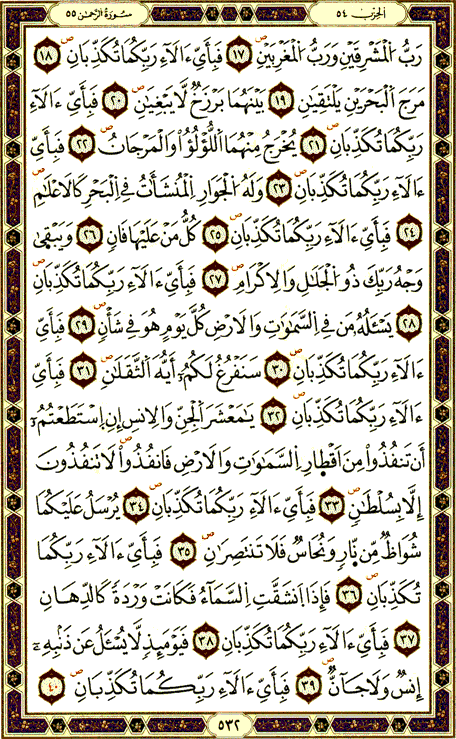 سورة الرحمن ٥٥
الحزب ٥٤
رَبُّ الْمَشْرِقَيْنِ وَرَبُّ الْمَغْرِبَيْنِ ١٧ فَبِأَيِّ ءَالَآءِ رَبِّكُمَا تُكَذِّبَانِ ١٨
مَرَجَ الْبَحْرَيْنِ يَلْتَقِيَٰنِ ١٩ بَيْنَهُمَا بَرْزَخٌ لَّا يَبْغِيَٰنِ ٢٠ فَبِأَيِّ ءَالَآءِ
رَبِّكُمَا تُكَذِّبَانِ ٢١ يُخْرَجُ مِنْهُمَا اللُّؤْلُؤُ وَالْمَرْجَانُ ٢٢ فَبِأَيِّ
ءَالَآءِ رَبِّكُمَا تُكَذِّبَانِ ٢٣ وَلَهُ الْجَوَارِ الْمُنشَـَٔاتُ فِي الْبَحْرِ كَالَاعْلَٰمِ
٢٤ فَبِأَيِّ ءَالَآءِ رَبِّكُمَا تُكَذِّبَانِ ٢٥ كُلُّ مَنْ عَلَيْهَا فَانٍ ٢٦ وَيَبْقَىٰ
وَجْهُ رَبِّكَ ذُو الْجَلَٰلِ وَالِاكْرَامِ ٢٧ فَبِأَيِّ ءَالَآءِ رَبِّكُمَا تُكَذِّبَانِ
٢٨ يَسْـَٔلُهُۥ مَن فِي السَّمَٰوَٰتِ وَالَارْضِ كُلَّ يَوْمٍ هُوَ فِي شَأْنٍ ٢٩ فَبِأَيِّ
ءَالَآءِ رَبِّكُمَا تُكَذِّبَانِ ٣٠ سَنَفْرُغُ لَكُمُۥٓ أَيُّهَ الثَّقَلَٰنِ ٣١ فَبِأَيِّ
ءَالَآءِ رَبِّكُمَا تُكَذِّبَانِ ٣٢ يَٰمَعْشَرَ الْجِنِّ وَالِانسِ إِنِ اسْتَطَعْتُمُۥٓ
أَن تَنفُذُواْ مِنَ اَقْطَارِ السَّمَٰوَٰتِ وَالَارْضِ فَانفُذُواْ لَا تَنفُذُونَ
إِلَّا بِسُلْطَٰنٍ ٣٣ فَبِأَيِّ ءَالَآءِ رَبِّكُمَا تُكَذِّبَانِ ٣٤ يُرْسَلُ عَلَيْكُمَا
شُوَاظٌ مِّن نَّارٍ وَنُحَاسٌ فَلَا تَنتَصِرَانِ ٣٥ فَبِأَيِّ ءَالَآءِ رَبِّكُمَا
تُكَذِّبَانِ ٣٦ فَإِذَا انشَقَّتِ السَّمَآءُ فَكَانَتْ وَرْدَةً كَالدِّهَانِ
٣٧ فَبِأَيِّ ءَالَآءِ رَبِّكُمَا تُكَذِّبَانِ ٣٨ فَيَوْمَئِذٍ لَّا يُسْـَٔلُ عَن ذَنۢبِهِۦٓ
إِنسٌ وَلَا جَآنٌّ ٣٩ فَبِأَيِّ ءَالَآءِ رَبِّكُمَا تُكَذِّبَانِ ٤٠
٥٣٢